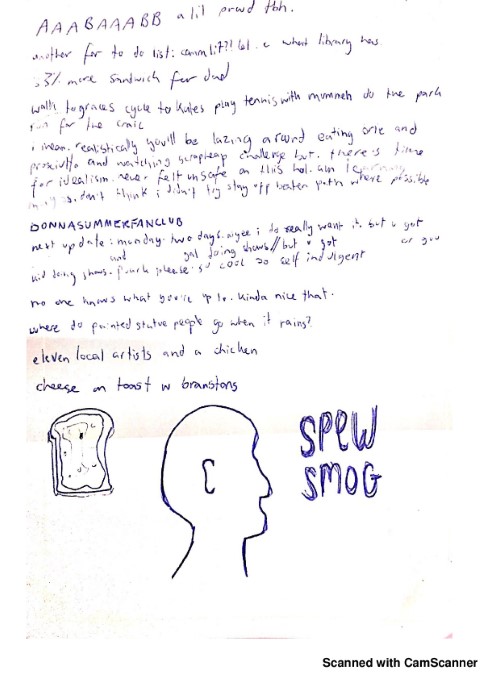 AAABAAABB a lil prwd tbh.
another for to do list: comm lit?!! lol. c what library has
.3% more sandwich for dad
walk to graces cycle to kates play tennis with mummeh do the park
run for the craic
i mean. realistically you'll be lazing around eating brie and
prosciutto and watching scrapheap challenge but. there's time
for idealism. never felt unsafe on this hol. am learning
things. don't think i didn't try stay off beaten path where possible
DONNASUMMERFANCLUB
next update: monday. two days. i do really want it. but u got
and gal doing shows // but u got or gou
doing shows. please. so cool so self indulgent
no one knows what you're up to. kinda nice that.
where do painted statue people go when it rains?
eleven local artists and a chicken
cheese on toast w branstons
SPEW
SMOG
Scanned with CamScanner